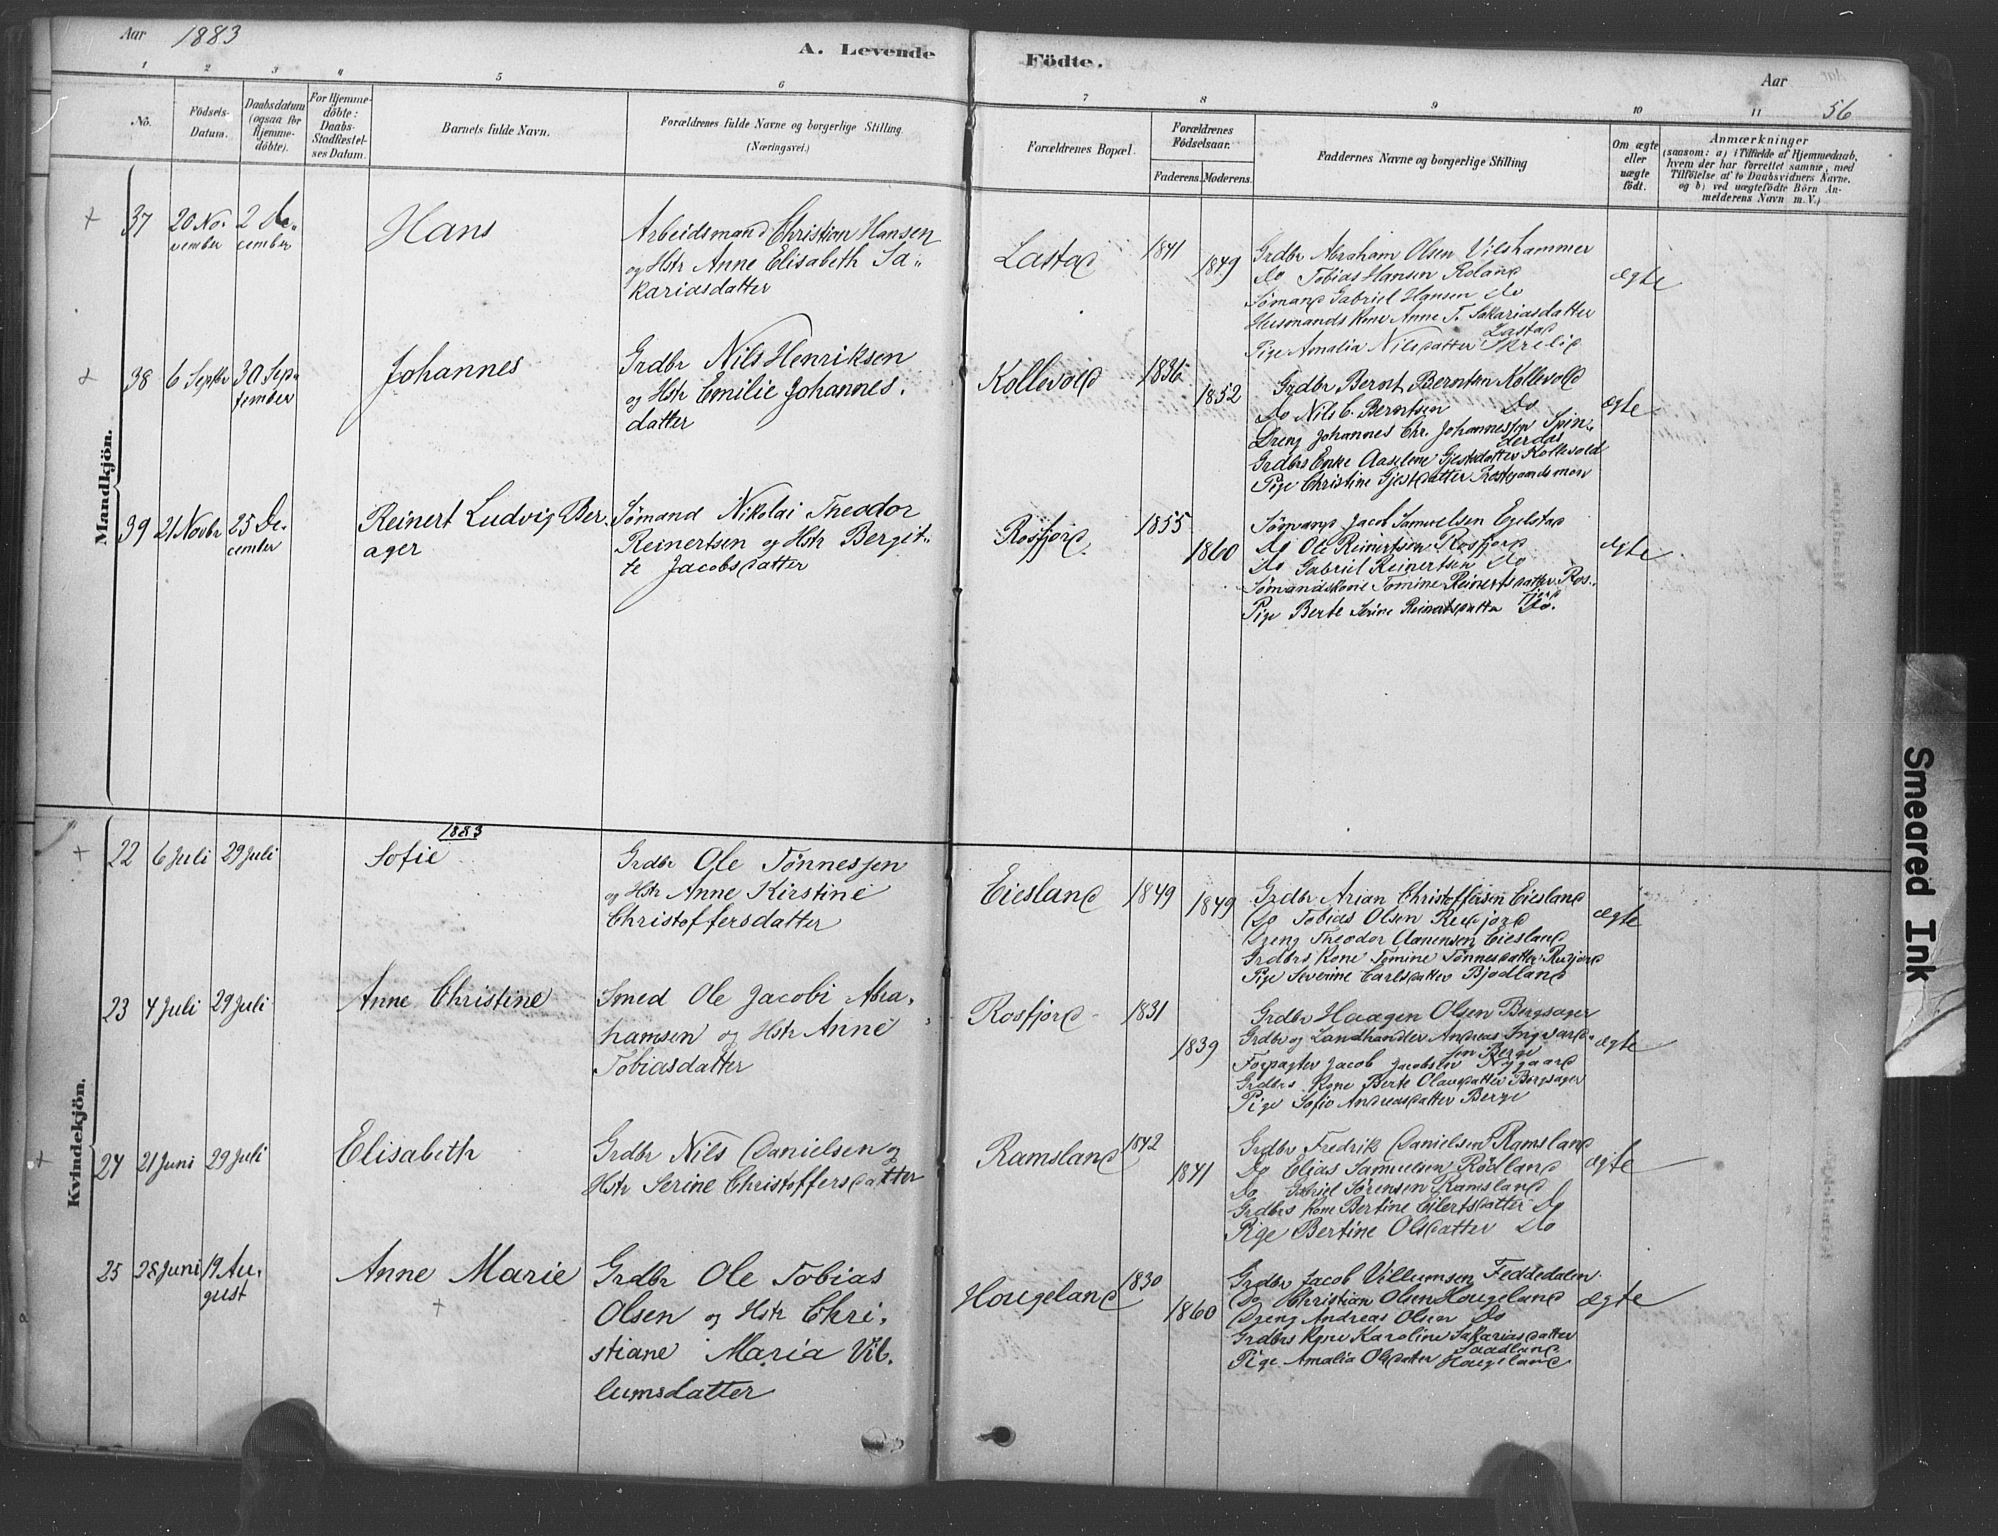 Aar 1883
A. Levende Födte.
Aar
56
1 2 3 4 5 6 7 8 9 10 11
No.
Födsels-
Datum.
Daabsdatum
(ogsaa for
Hjemme-
döbte).
For Hjemme-
döbte:
Daabs-
Stadfestel-
ses Datum.
Barnets fulde Navn.
Forældrenes fulde Navne og borgerlige Stilling.
(Næringsvei.)
Forældrenes Bopæl.
Forældrenes
Födselsaar.
Faderens. Moderens.
Faddernes Navne og borgerlige Stilling
Om ægte
eller
uægte
födt.
Anmærkninger
(saasom: a) i Tilfælde af Hjemmedaab,
hvem der har forrettet samme, med
Tilföielse af to Daabsvidners Navne.
og b) ved uægtefödte Börn An-
melderens Navn m. V.)
Mandkjön.
+ 37
20 No-
vember
2 De-
cember
Hans
Arbeidsmand Christian Hansen
og Hstr Anne Elisabeth Sa-
kariasdatter
Lastad
1841
1849
Grdbr Abraham Olsen Vilshammer
Do Tobias Hansen Roland
Sømand Gabriel Hansen Do
Husmands Kone Anne T. Sakariasdatter
Lastad
Pige Amalia Nilsdatter Skrelid
ægte
+ 38
6 Septbr
30 Sep-
tember
Johannes
Grdbr Nils Henriksen
og Hstr Emilie Johannes-
datter
Kollevold
1836
1852
Grdbr Bernt Berntsen Kollevold
Do Nils C. Berntsen Do
Dreng Johannes Chr. Johannessen Spin-
derdas
Grdbrs Enke Aaselene Gjestsdatter Kollevold
Pige Christine Gjestsdatter
ægte
39
21 Novbr
25 De-
cember
Reinert Ludvig Ber-
ager
Sømand Nikolai Theodor
Reinertsen og Hstr Bergit-
te Jacobsdatter
Rosfjord
1855
1860
Sømand Jacob Samuelsen Egelstad
Do Ole Reinertsen Rosfjord
Do Gabriel Reinertsen Do
Sømandskone Tomine Reinertsdatter Ros-
fjord
Pige Berte Serine Reinertsdatter Do.
ægte
Kvindekjön.
1883
+ 22
6 Juli
29 Juli
Sofie
Grdbr Ole Tønnessen
og Hstr Anne Kirstine
Christoffersdatter
Eiesland
1849
1849
Grdbr Arian Christoffersen Eiesland
Do Tobias Olsen Refjord
Dreng Theodor Aanensen Eiesland
Grdbrs Kone Tomine Tønnesdatter
Pige Severine Carlsdatter Bjodland
ægte
23
4 Juli
29 Juli
Anne Christine
Smed Ole Jacobi Abra-
hamsen og Hstr Anne
Tobiasdatter
Rosfjord
1831
1839
Grdbr Haagen Olsen Bergsager
Grdbr og Landhandler Andreas Ingvard-
sen Berge
Forpagter Jacob Jacobsen Nygaard
Grdbrs Kone Berte Olausdatter Bergsager
Pige Sofie Andreasdatter Berge
ægte
+ 24
21 Juni
29 Juli
Elisabeth
Grdbr Nils Danielsen og
Hstr Serine Christoffersdatter
Ramsland
1842
1841
Grdbr Fredrik Danielsen Ramsland
Do Elias Samuelsen Rødland
Do Gabriel Sørensen Ramsland
Grdbrs Kone Bertine Eilertsdatter Do
Pige Bertine Olsdatter Do
ægte
25
28 Juni
19 Au-
gust
Anne Marie
+
Grdbr Ole Tobias
Olsen og Hstr Chri-
stiane Maria Vil-
lumsdatter
Hougeland
1830
1860
Grdbr Jacob Villumsen Feddedalen
Do Christian Olsen Hougeland
Dreng Andreas Olsen Do
Grdbrs Kone Karoline Sakariasdatter
Saadland
Pige Amalia Olsdatter Hougeland
ægte
Smeared Ink